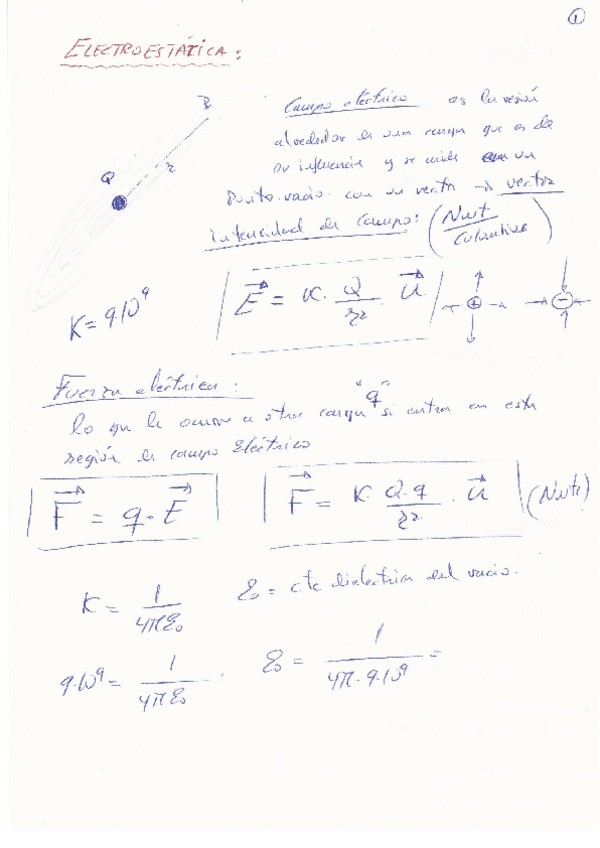 1
ELECTROESTÁTICA:
P
Q
r
Campo eléctrico es la región
alrededor de una carga que es de
su influencia y se mide en un
punto vacío con un vector → vector
intensidad de campo: (Newt / Culombios)
K = 9·10⁹
E⃗ = K · Q / r² · u⃗
+
−
Fuerza eléctrica:
lo que le ocurre a otra carga "q" si entra en esta
región de campo Eléctrico
F⃗ = q · E⃗
F⃗ = K · Q·q / r² · u⃗ (Newt)
K = 1 / 4πε₀
ε₀ = cte dieléctrica del vacío.
9·10⁹ = 1 / 4πε₀
ε₀ = 1 / 4π·9·10⁹ =